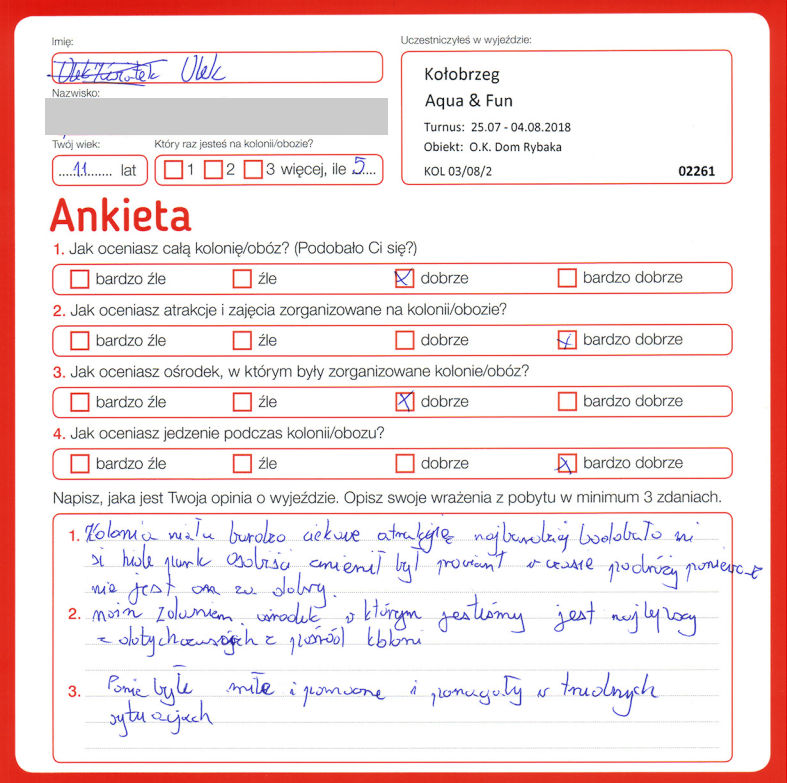 Imię:
Olek
Nazwisko:
Twój wiek:
11 lat
Który raz jesteś na kolonii/obozie?
1 2 3 więcej, ile 5
Uczestniczyłeś w wyjeździe:
Kołobrzeg
Aqua & Fun
Turnus: 25.07 - 04.08.2018
Obiekt: O.K. Dom Rybaka
KOL 03/08/2 02261
Ankieta
1. Jak oceniasz całą kolonię/obóz? (Podobało Ci się?)
bardzo źle źle dobrze bardzo dobrze
2. Jak oceniasz atrakcje i zajęcia zorganizowane na kolonii/obozie?
bardzo źle źle dobrze bardzo dobrze
3. Jak oceniasz ośrodek, w którym były zorganizowane kolonie/obóz?
bardzo źle źle dobrze bardzo dobrze
4. Jak oceniasz jedzenie podczas kolonii/obozu?
bardzo źle źle dobrze bardzo dobrze
Napisz, jaka jest Twoja opinia o wyjeździe. Opisz swoje wrażenia z pobytu w minimum 3 zdaniach.
1. Kolonia miała bardzo ciekawe atrakcje najbardziej podobało mi
si park bym prowiant w czasie podróży ponieważ
nie jest on za dobry.
2. moim zdaniem ośrodek w którym jesteśmy jest najlepszy
z dotychczasowych z pośród koloni
3. Panie były miłe i pomocne i pomagały w trudnych
sytuacjach